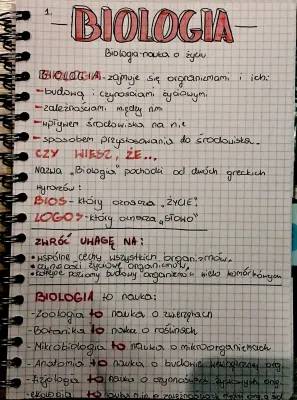 1.
BIOLOGIA
Biologia-nauka o życiu
BIOLOGIA-zajmuje się organizmami i ich:
-budową i czynościami życiowymi
-zależnościami między nimi
-wpływem środowiska na nie
-sposobem przystosowania do środowiska.
CZY WIESZ, ŻE...
Nazwa "Biologia" pochodzi od dwóch greckich
wyrazów:
BIOS-który oznacza „ŻYCIE”.
LOGOS-który oznacza „SŁOWO”
ZWRÓĆ UWAGĘ NA:
•wspólne cechy wszystkich organizmów,
•czynności życiowe organizmów,
•kolejne poziomy budowy organizmu wielokomórkowych
BIOLOGIA to nauka:
-Zoologia to nauka o zwierzętach
-Botanika to nauka o roślinach
-Mikrobiologia to nauka o mikroorganizmach
-Anatomia to nauka o budowie wewnętrznej org.
-Fizjologia to nauka o czynnościach życiowych org.
-ekologia to nauka o zależnościach